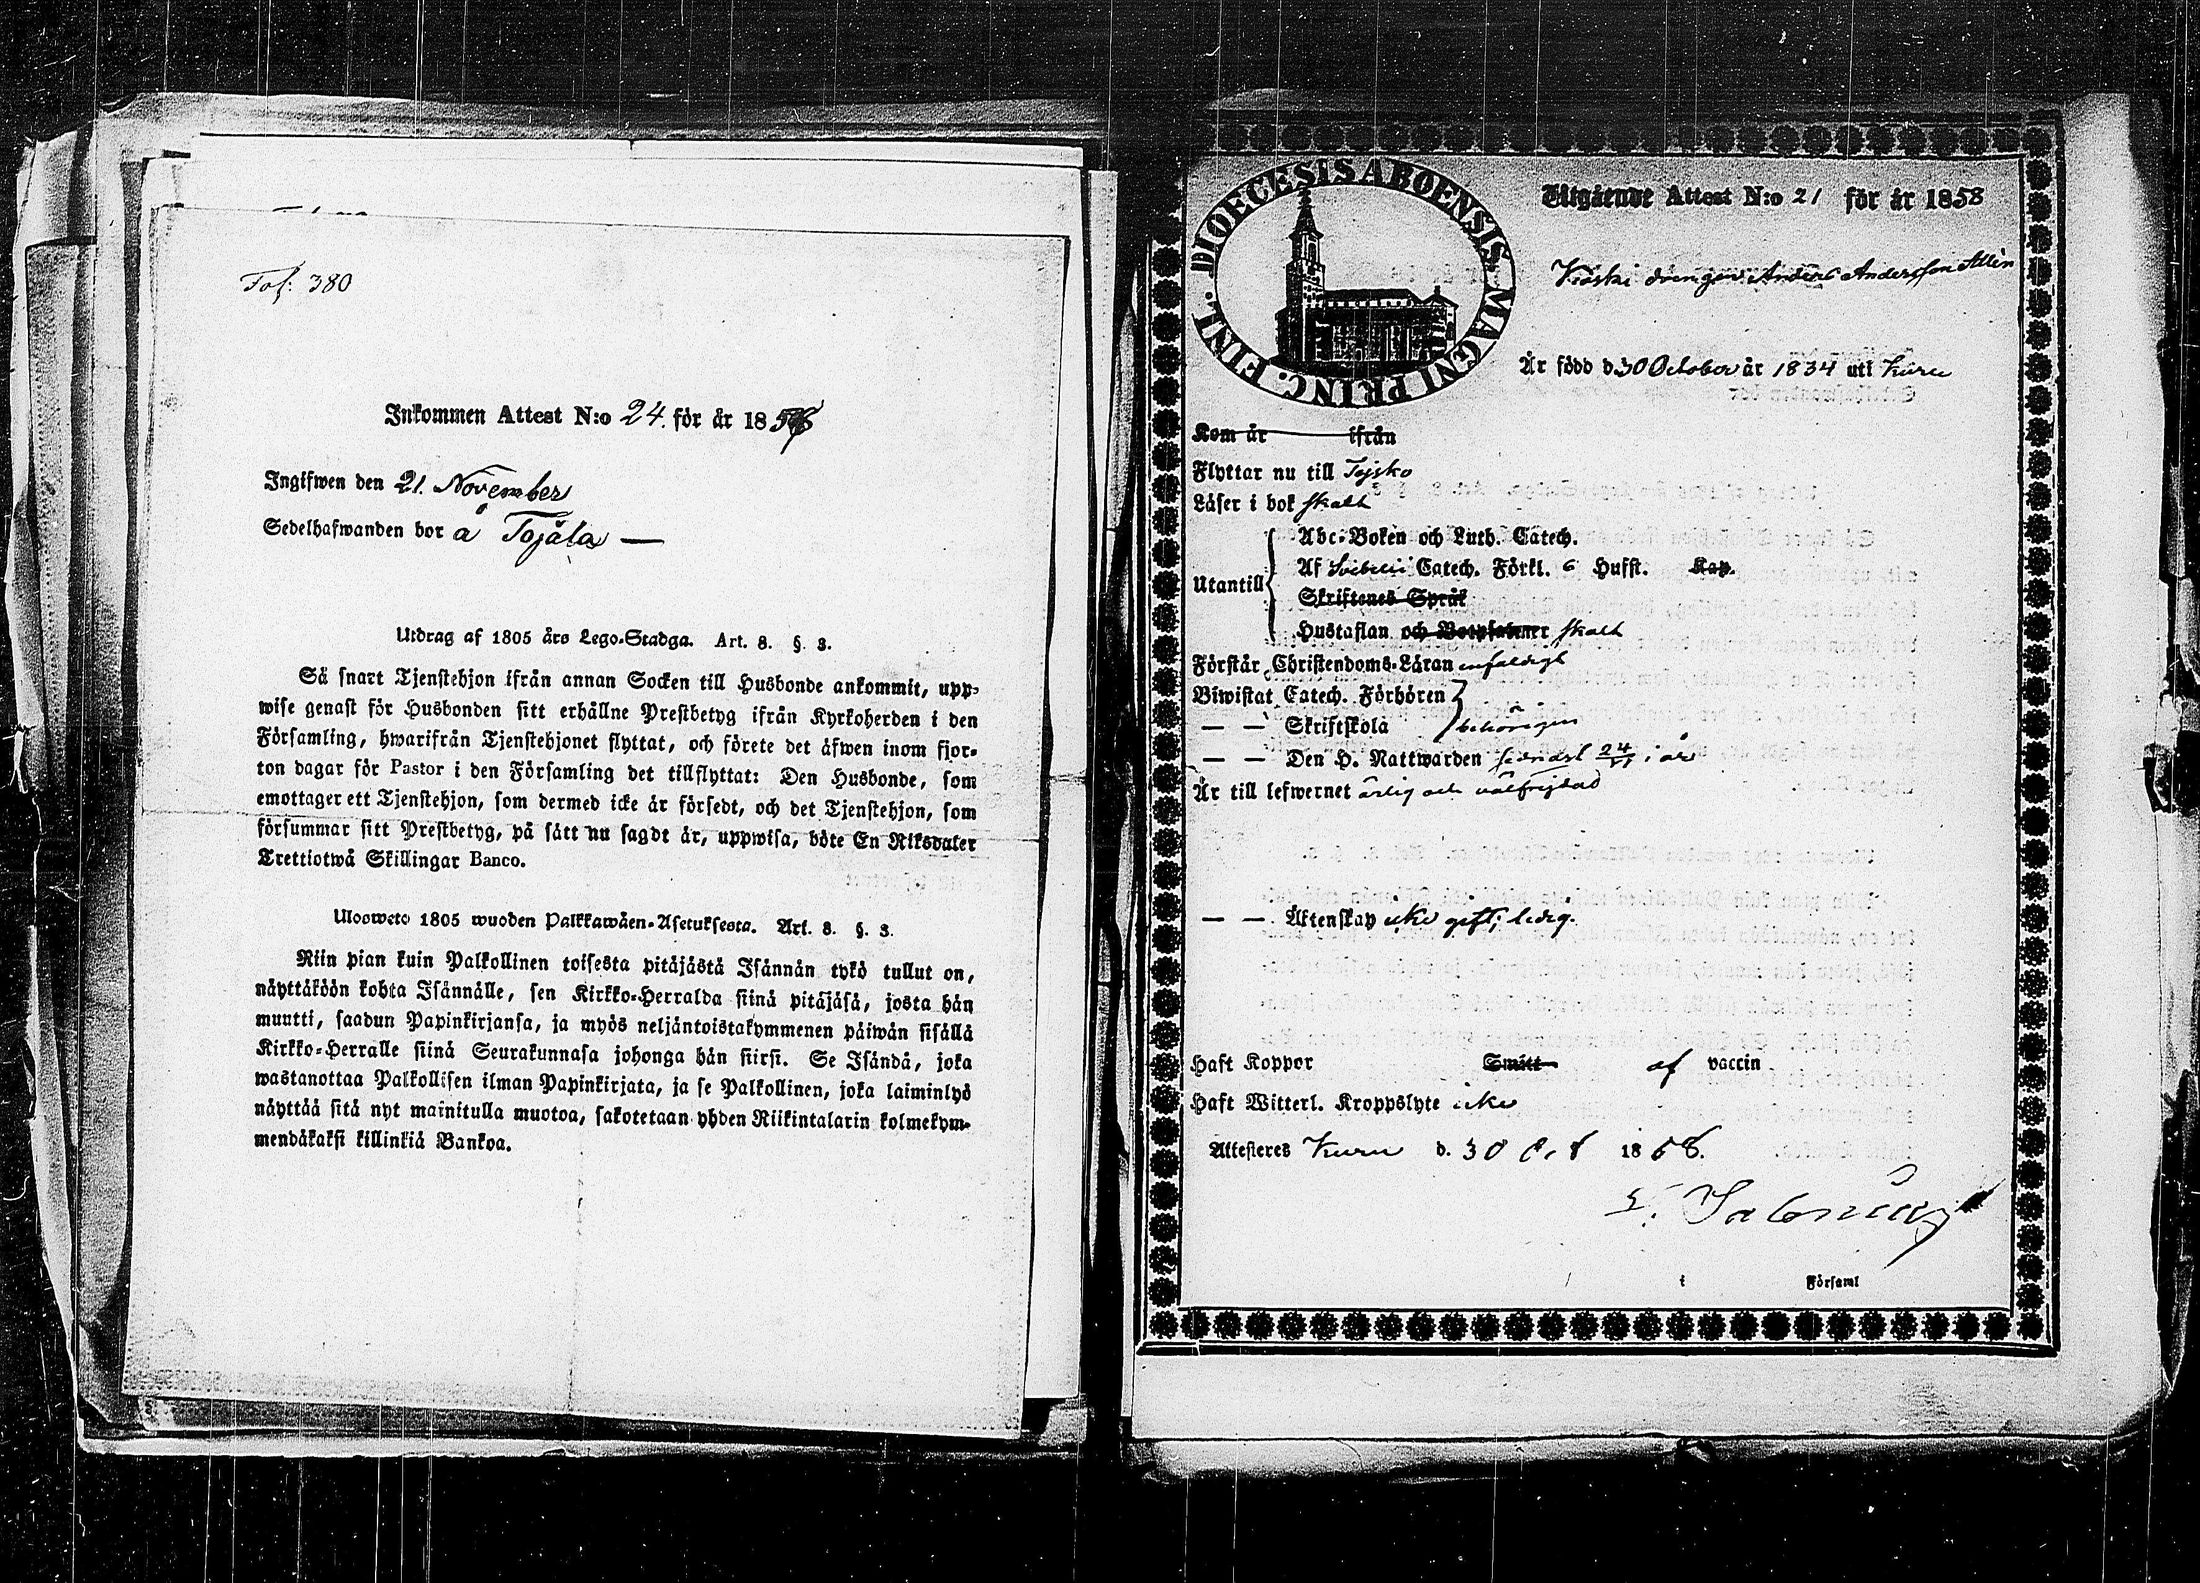 Fol: 380
Inkommen Attest N:o 24. för år 1858
Ingifwen den 21. November
Sedelhafwanden bor å Tojåla —
Utdrag af 1805 års Lego-Stadga. Art. 8. §. 3.
Så snart Tjenstehjon ifrån annan Socken till Husbonde ankommit, upp-
wise genast för Husbonden sitt erhållne Prestbetyg ifrån Kyrkoherden i den
Församling, hwarifrån Tjenstehjonet flyttat, och förete det äfwen inom fjor-
ton dagar för Pastor i den Församling det tillflyttat: Den Husbonde, som
emottager ett Tjenstehjon, som dermed icke är försedt, och det Tjenstehjon, som
försummar sitt Prestbetyg, på sätt nu sagdt är, uppwisa, böte En Riksdaler
Trettiotwå Skillingar Banco.
Ulosweto 1805 wuoden Palkkawäen-Asetuksesta. Art. 8. §. 3.
Niin pian kuin Palkollinen toisesta pitäjästä Isännän tykö tullut on,
näyttäköön kohta Isännälle, sen Kirkko-Herralda siinä pitäjäsä, josta hän
muutti, saadun Papinkirjansa, ja myös neljäntoistakymmenen päiwän sisällä
Kirkko-Herralle siinä Seurakunnasa johonga hän siirsi. Se Isändä, joka
wastanottaa Palkollisen ilman Papinkirjata, ja se Palkollinen, joka laiminlyö
näyttää sitä nyt mainitulla muotoa, sakotetaan yhden Riikintalarin kolmekym-
mendäkaksi killinkiä Bankoa.
DIOECESIS ABOENSIS MAGNI PRINC. FINL.
Utgående Attest N:o 21 för år 1858
drengen Anders Andersson
Är född d. 30 October år 1834 uti Kuru
Kom år ifrån
Flyttar nu till Tejsko
Läser i bok skalt
Utantill
Abc-Boken och Luth. Catech.
Af Svebelii Catech. Förkl. 6 Hufst. Kap.
Skriftenes Språk
Hustaflan och Botpsalmer skalt
Förstår Christendoms-Läran enfaldigt
Biwistat Catech. Förhören
— — Skriftskola behörigen
— — Den H. Nattwarden sednast 24/ i år
Är till lefwernet ärlig och välfrejdad
— — Äktenskap icke gift; ledig.
Haft Koppor Smitt af vaccin
Haft Witterl. Kroppslyte icke
Attesteres Kuru d. 30 Oct 1858.
i Församl